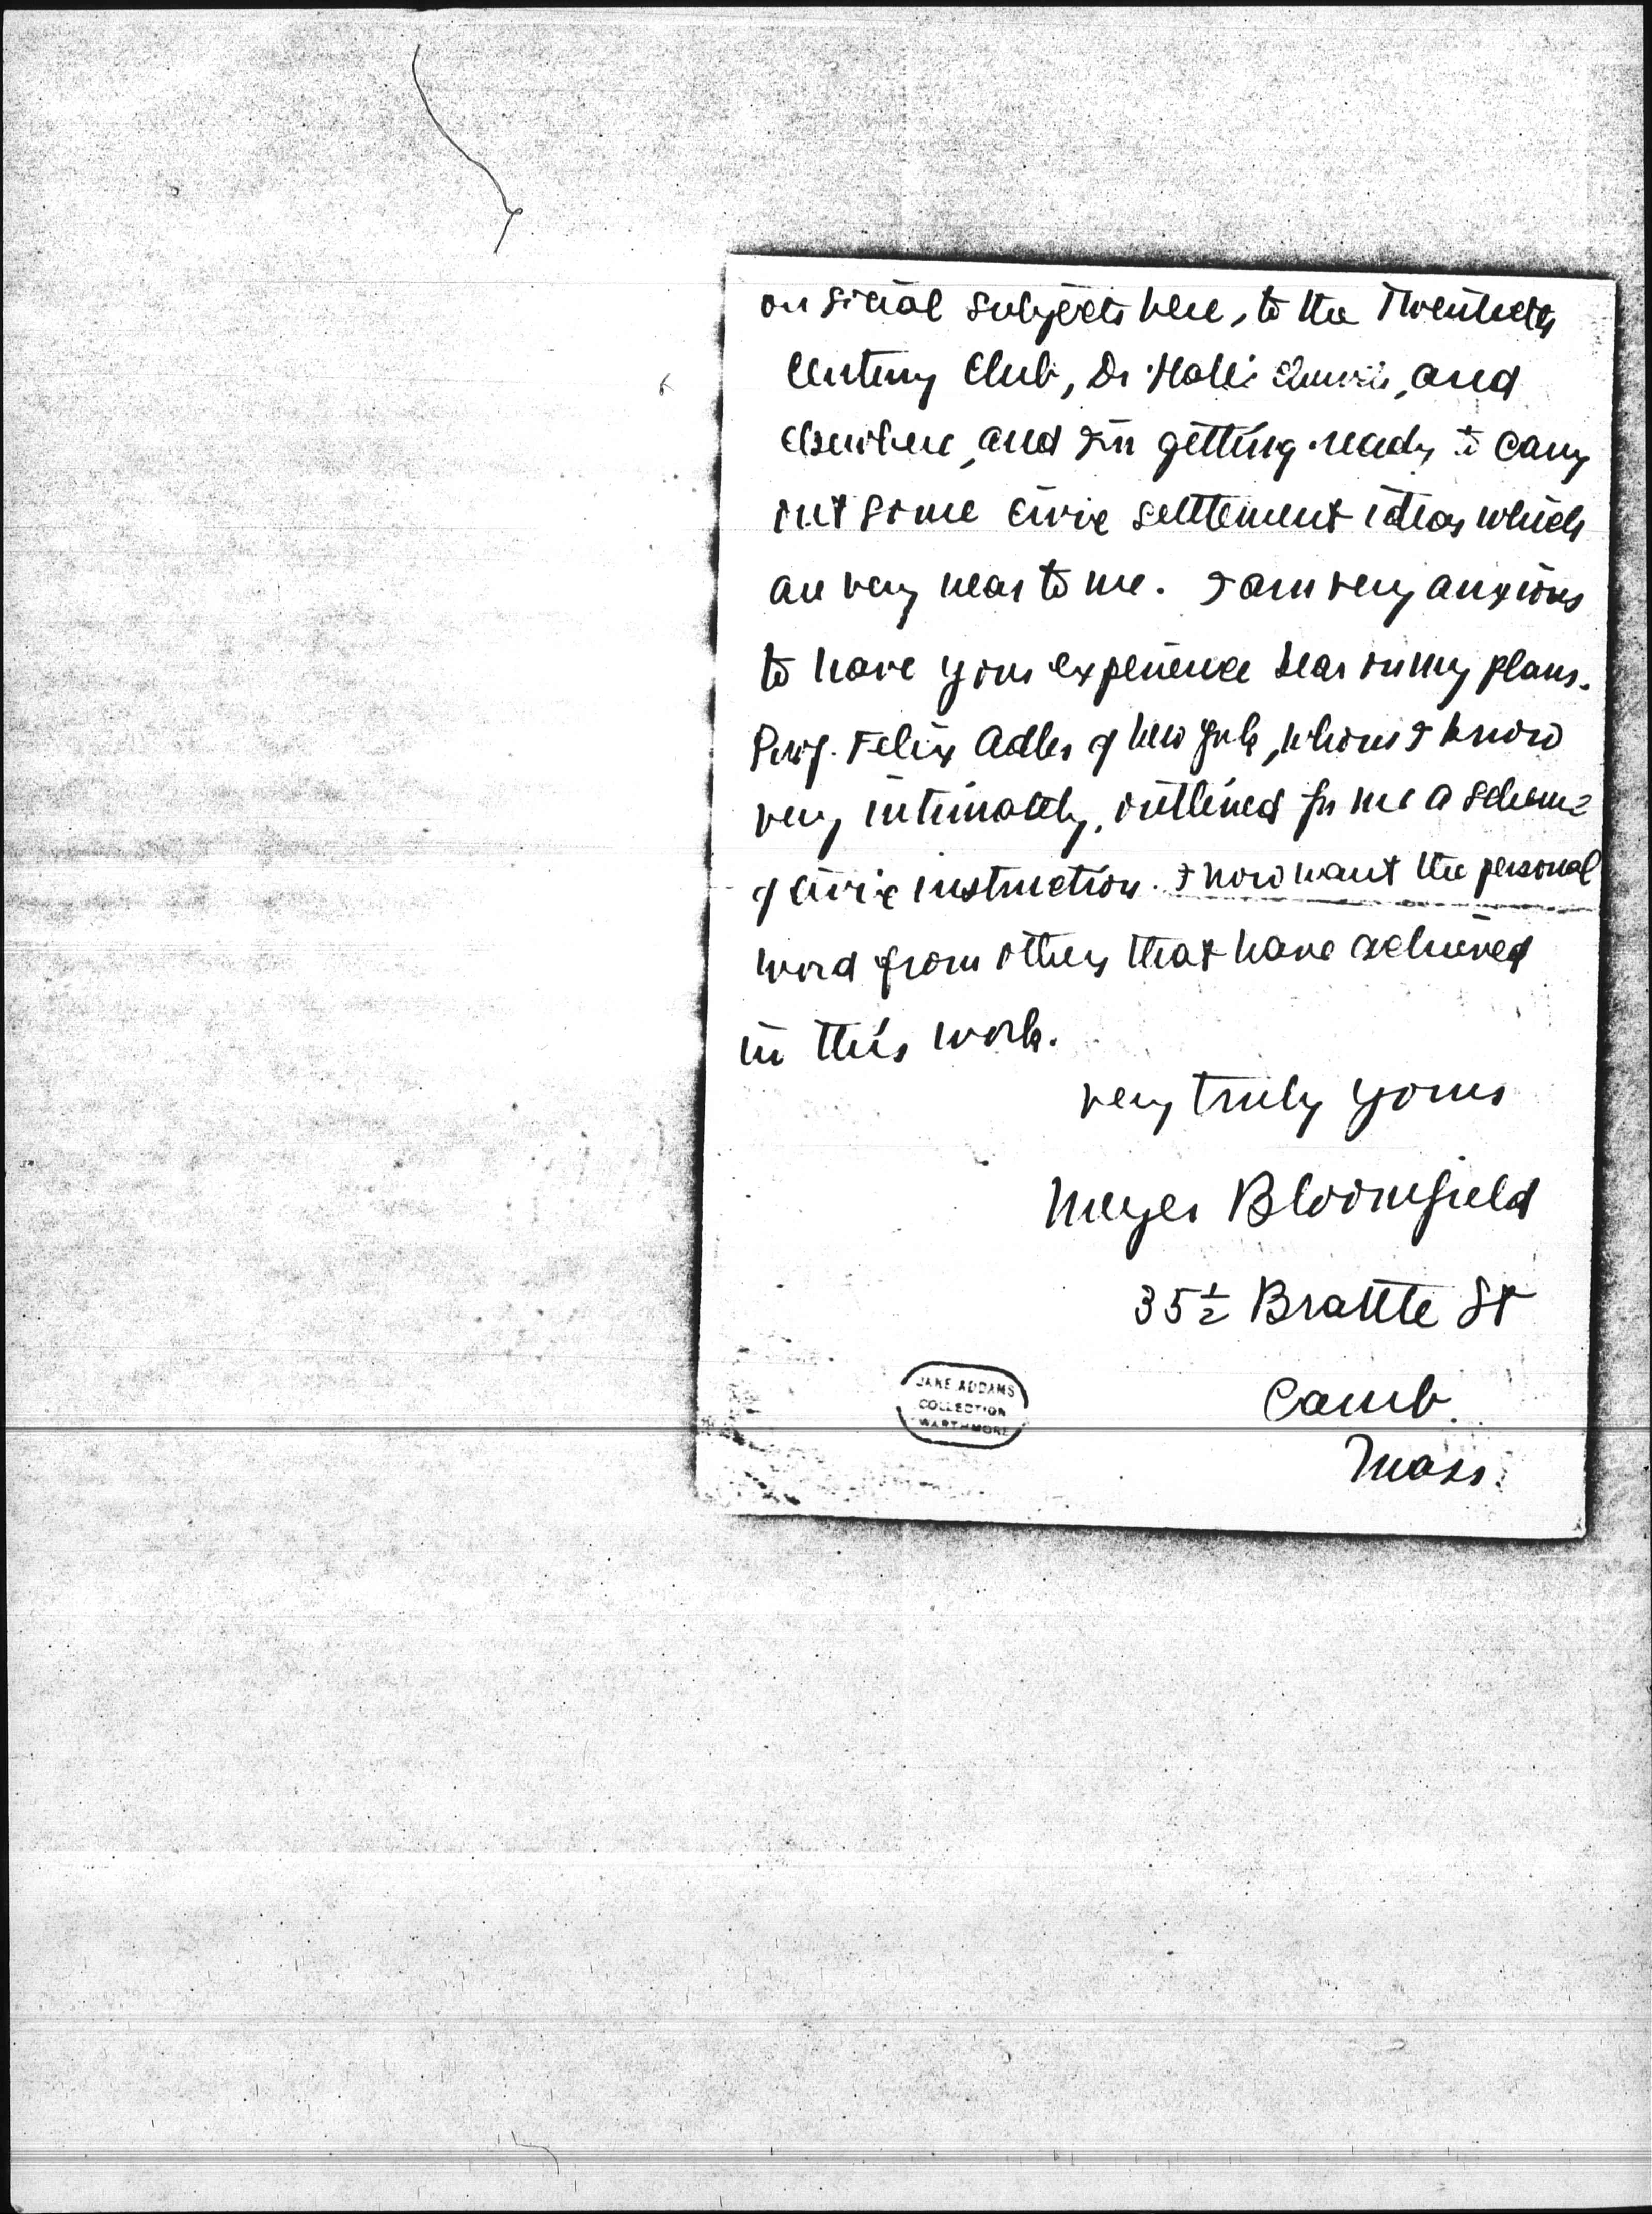 on social subjects here, to the Twentieth
Century Club, Dr Hale's Church, and
elsewhere, and I'm getting ready to carry
out some civic settlement ideas which
are very near to me. I am very anxious
to have your experience bear on my plans.
Prof. Felix Adler of New York, whom I know
very intimately, outlined for me a scheme
of civic instruction. I now want the personal
word from others that have achieved
in this work.
Very truly yours
Meyer Bloomfield
35½ Brattle St
Camb.
Mass.
JANE ADDAMS
COLLECTION
SWARTHMORE